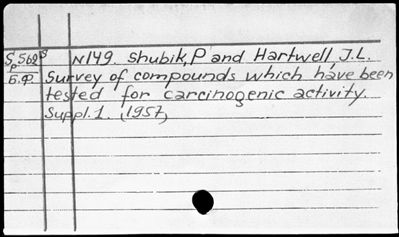 S 562 S N149. Shubik, P and Hartwell, J.L.
p
Б.Ф. Survey of compounds which have been
tested for carcinogenic activity.
Suppl. 1. (1957)